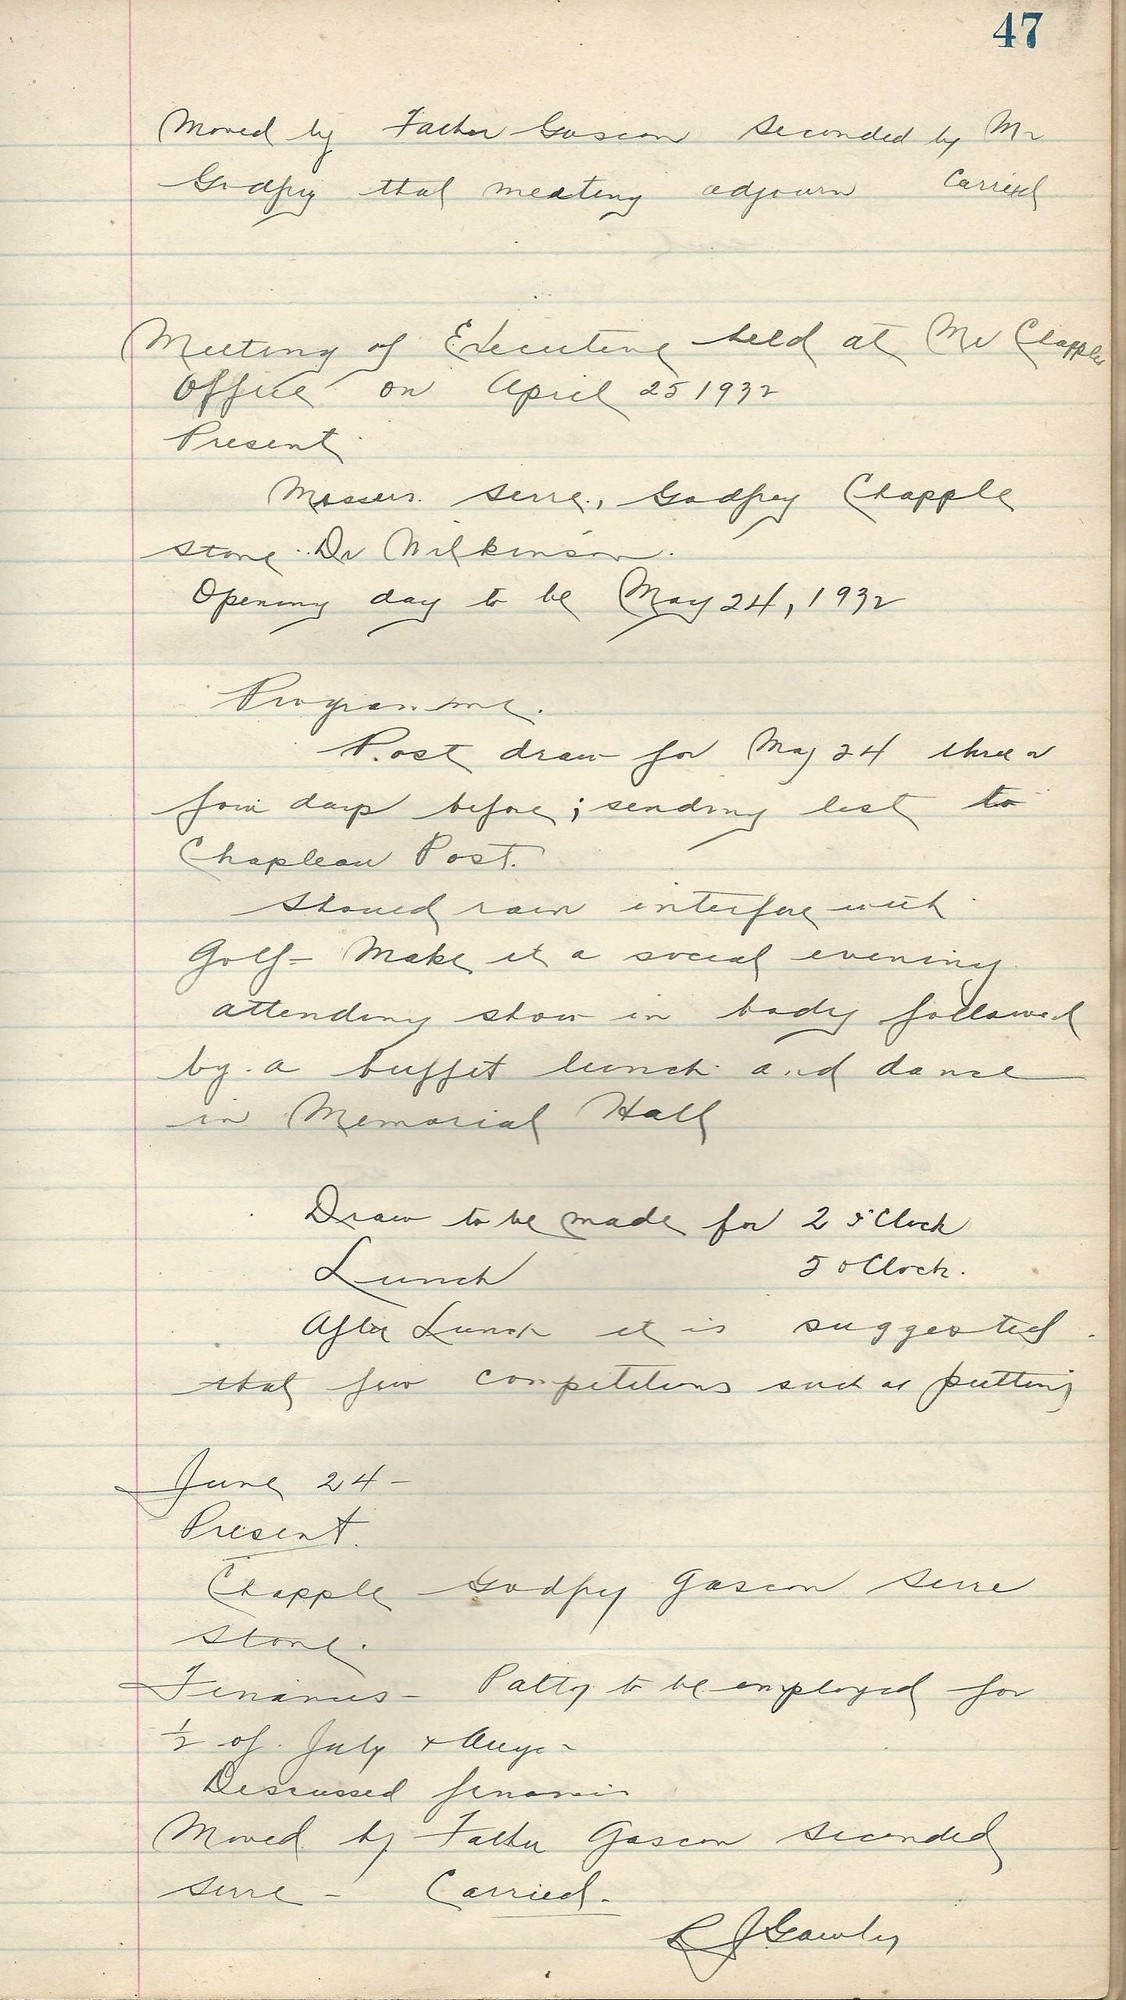 47
Moved by Father Gascon Seconded by Mr
Godfrey that meeting adjourn Carried
Meeting of Executive held at Mr Chapples
Office on April 25 1932
Present
Messers. Serre, Godfrey Chapple
Stone. Dr Wilkinson.
Opening day to be May 24, 1932
Programme.
Post draw for May 24 three or
four days before; sending list to
Chapleau Post.
Should rain interfere with
Golf - Make it a social evening
attending show in body followed
by a buffet lunch and dance
in Memorial Hall
Draw to be made for 2 o'Clock
Lunch 5 oClock.
After Lunch it is suggested
that few competitions such as putting
June 24 -
Present.
Chapple Godfrey Gascon Serre
Stone.
Finances - Patty to be employed for
1/2 of July & Aug -
Discussed finances
Moved by Father Gascon seconded
Serre - Carried.